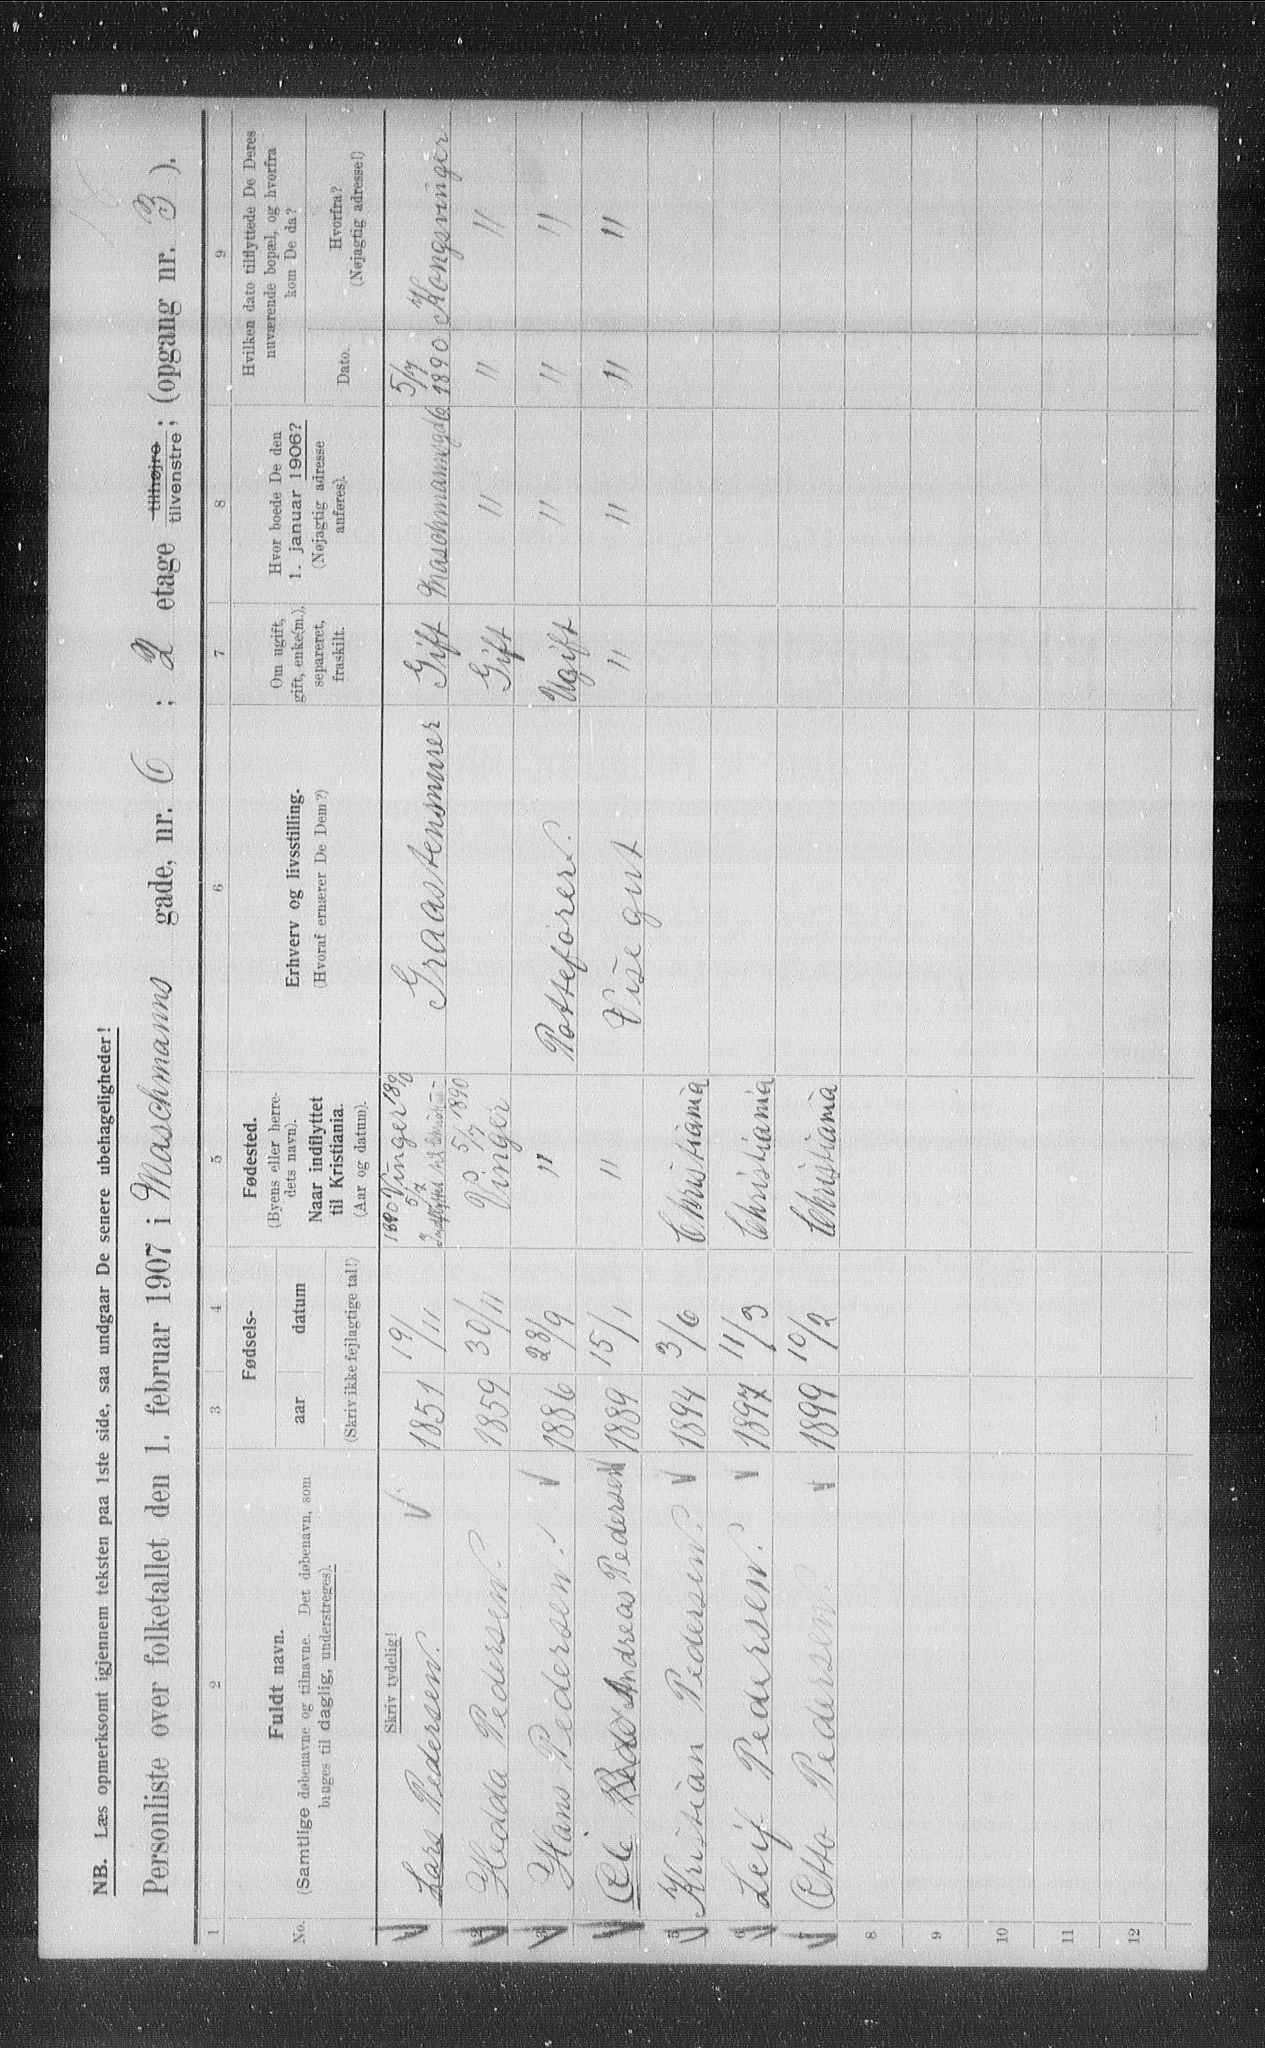 NB. Læs opmerksomt igjennem teksten paa 1ste side, saa undgaar De senere ubehageligheder!
Personliste over folketallet den 1. februar 1907 i Maschmanns gade, nr. 6 ; 2 etage tilhøjre tilvenstre; (opgang nr. 3 ).
1 2 3 4 5 6 7 8 9
No.
Fuldt navn.
(Samtlige døbenavne og tilnavne. Det døbenavn, som
bruges til daglig, understreges).
Fødsels-
aar datum
(Skriv ikke fejlagtige tal!)
Fødested.
(Byens eller herre-
dets navn).
Naar indflyttet
til Kristiania.
(Aar og datum).
Erhverv og livsstilling.
(Hvoraf ernærer De Dem?)
Om ugift,
gift, enke(m.),
separeret,
fraskilt.
Hvor boede De den
1. januar 1906?
(Nøjagtig adresse
anføres).
Hvilken dato tilflyttede De Deres
nuværende bopæl, og hvorfra
kom De da?
Dato.
Hvorfra?
(Nøjagtig adresse!)
Skriv tydelig!
1 Lars Pedersen. 1851 19/11 Vinger 5/7 1890 Indflyttet til Graastensmurer Gift Maschmannsgd 6 5/7 1890 Kongsvinger
2 Hedda Pedersen. 1859 30/11 Vinger 5/7 1890 Gift " " "
3 Hans Pedersen. 1886 28/9 " Potteforer. Ugift " " "
Ole Andreas Pedersen 1889 15/1 " Visegut " " " "
5 Kristian Pedersen. 1894 3/6 Christiania
6 Leif Pedersen. 1897 11/3 Christiania
7 Otto Pedersen. 1899 10/2 Christiania
8
9
10
11
12